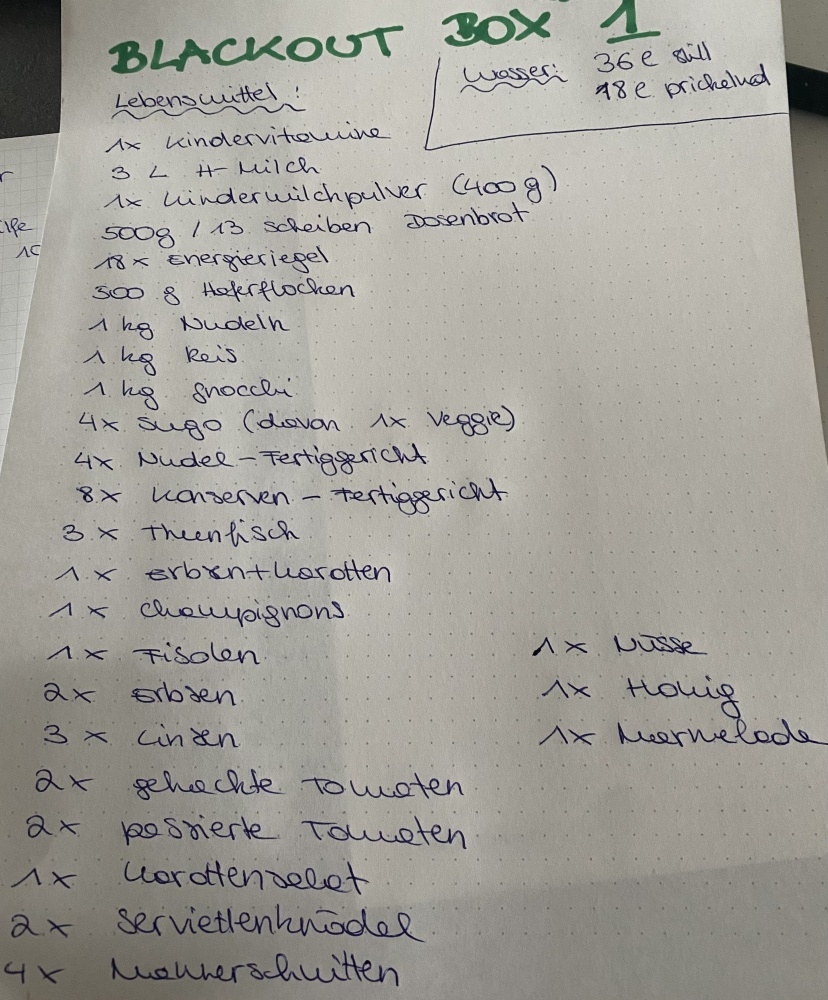 BLACKOUT BOX 1
Wasser: 36 l still
18 l prickelnd
Lebensmittel:
1x Kindervitamine
3 L H-Milch
1x Kindermilchpulver (400g)
500g / 13 Scheiben Dosenbrot
18x Energieriegel
500 g Haferflocken
1 kg Nudeln
1 kg Reis
1 kg Gnocchi
4x Sugo (davon 1x Veggie)
4x Nudel-Fertiggericht
8x Konserven-Fertiggericht
3x Thunfisch
1x Erbsen+Karotten
1x Champignons
1x Fisolen
2x Erbsen
3x Linsen
2x gehackte Tomaten
2x passierte Tomaten
1x Karottensalat
2x Serviettenknödel
4x Mannerschnitten
1x Nüsse
1x Honig
1x Marmelade